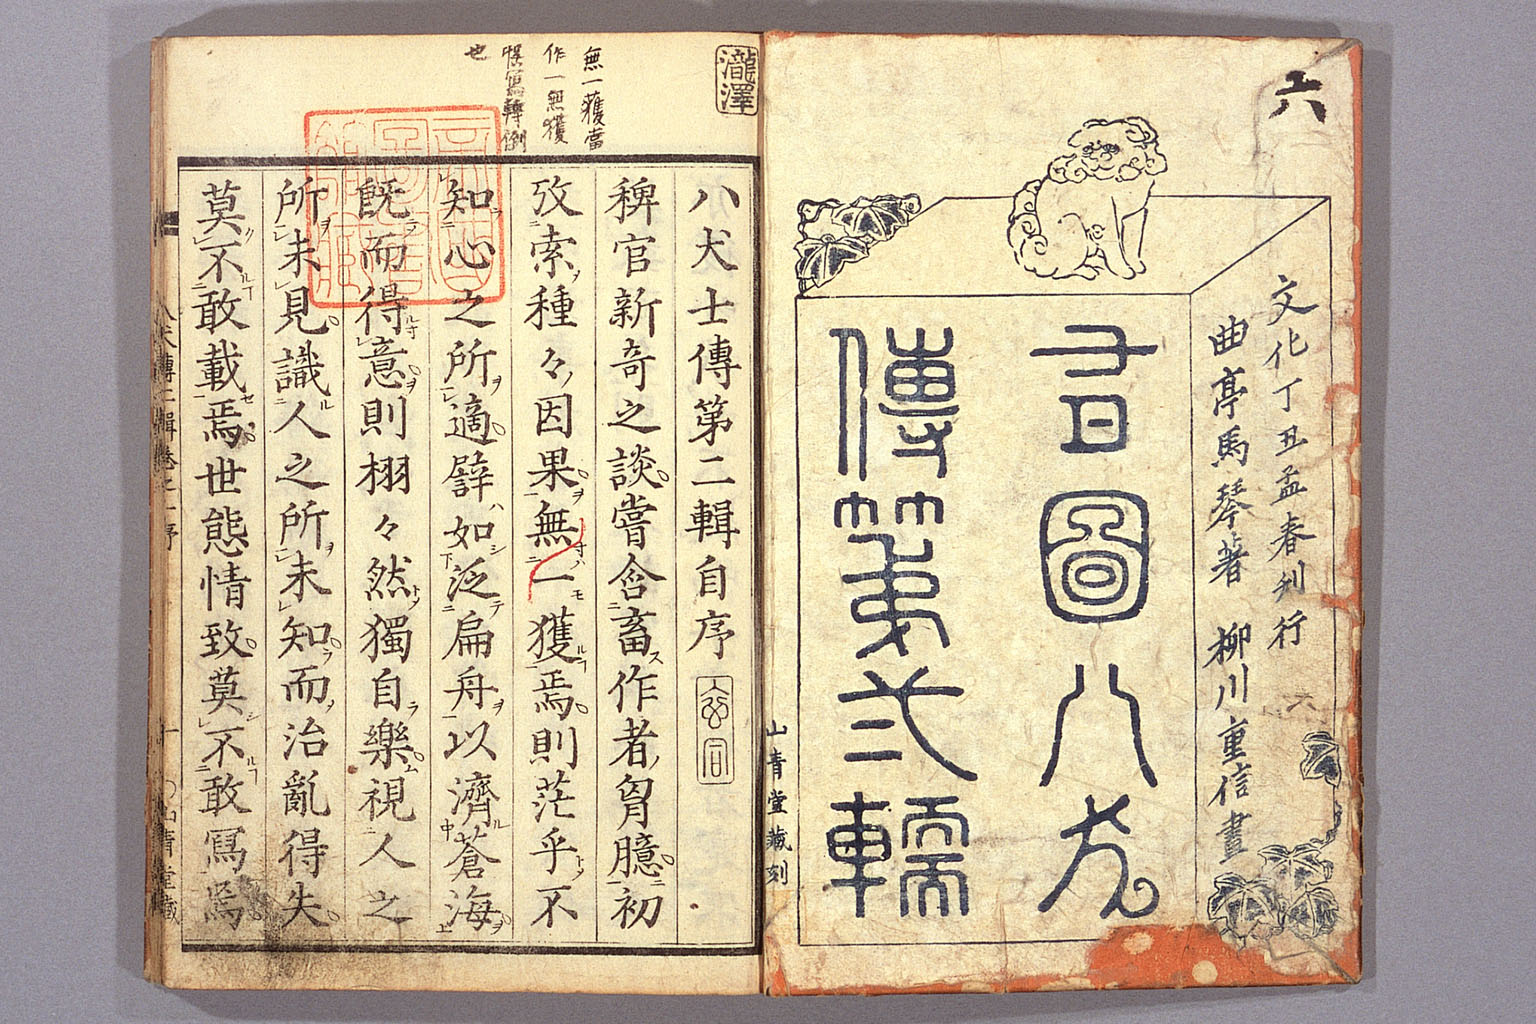 六
文化丁丑孟春刊行
曲亭馬琴著 柳川重信畫
有圖八犬
傳第弐輯
山青堂藏刻
瀧澤
無一獲當
作一無獲
悮寫轉倒
也
八犬士傳第二輯自序
稗官新奇之談嘗含畜作者胷臆初
攷索種々因果無一獲焉則茫乎不
知心之所適譬如泛扁舟以濟蒼海
既而得意則栩々然獨自樂視人之
所未見識人之所未知而治亂得失
莫不敢載焉世態情致莫不敢寫焉
八犬傳二輯卷之一序
一
山青堂藏